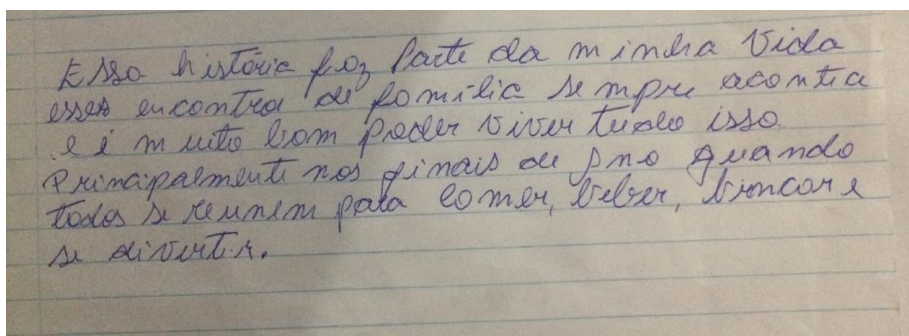 Essa história faz Parte da minha Vida
esses encontra de família sempre acontia
e é muito bom poder viver tudo isso.
Principalmente nos finais de Ano Quando
todos se reunem para comer, beber, brincar e
se divertir.